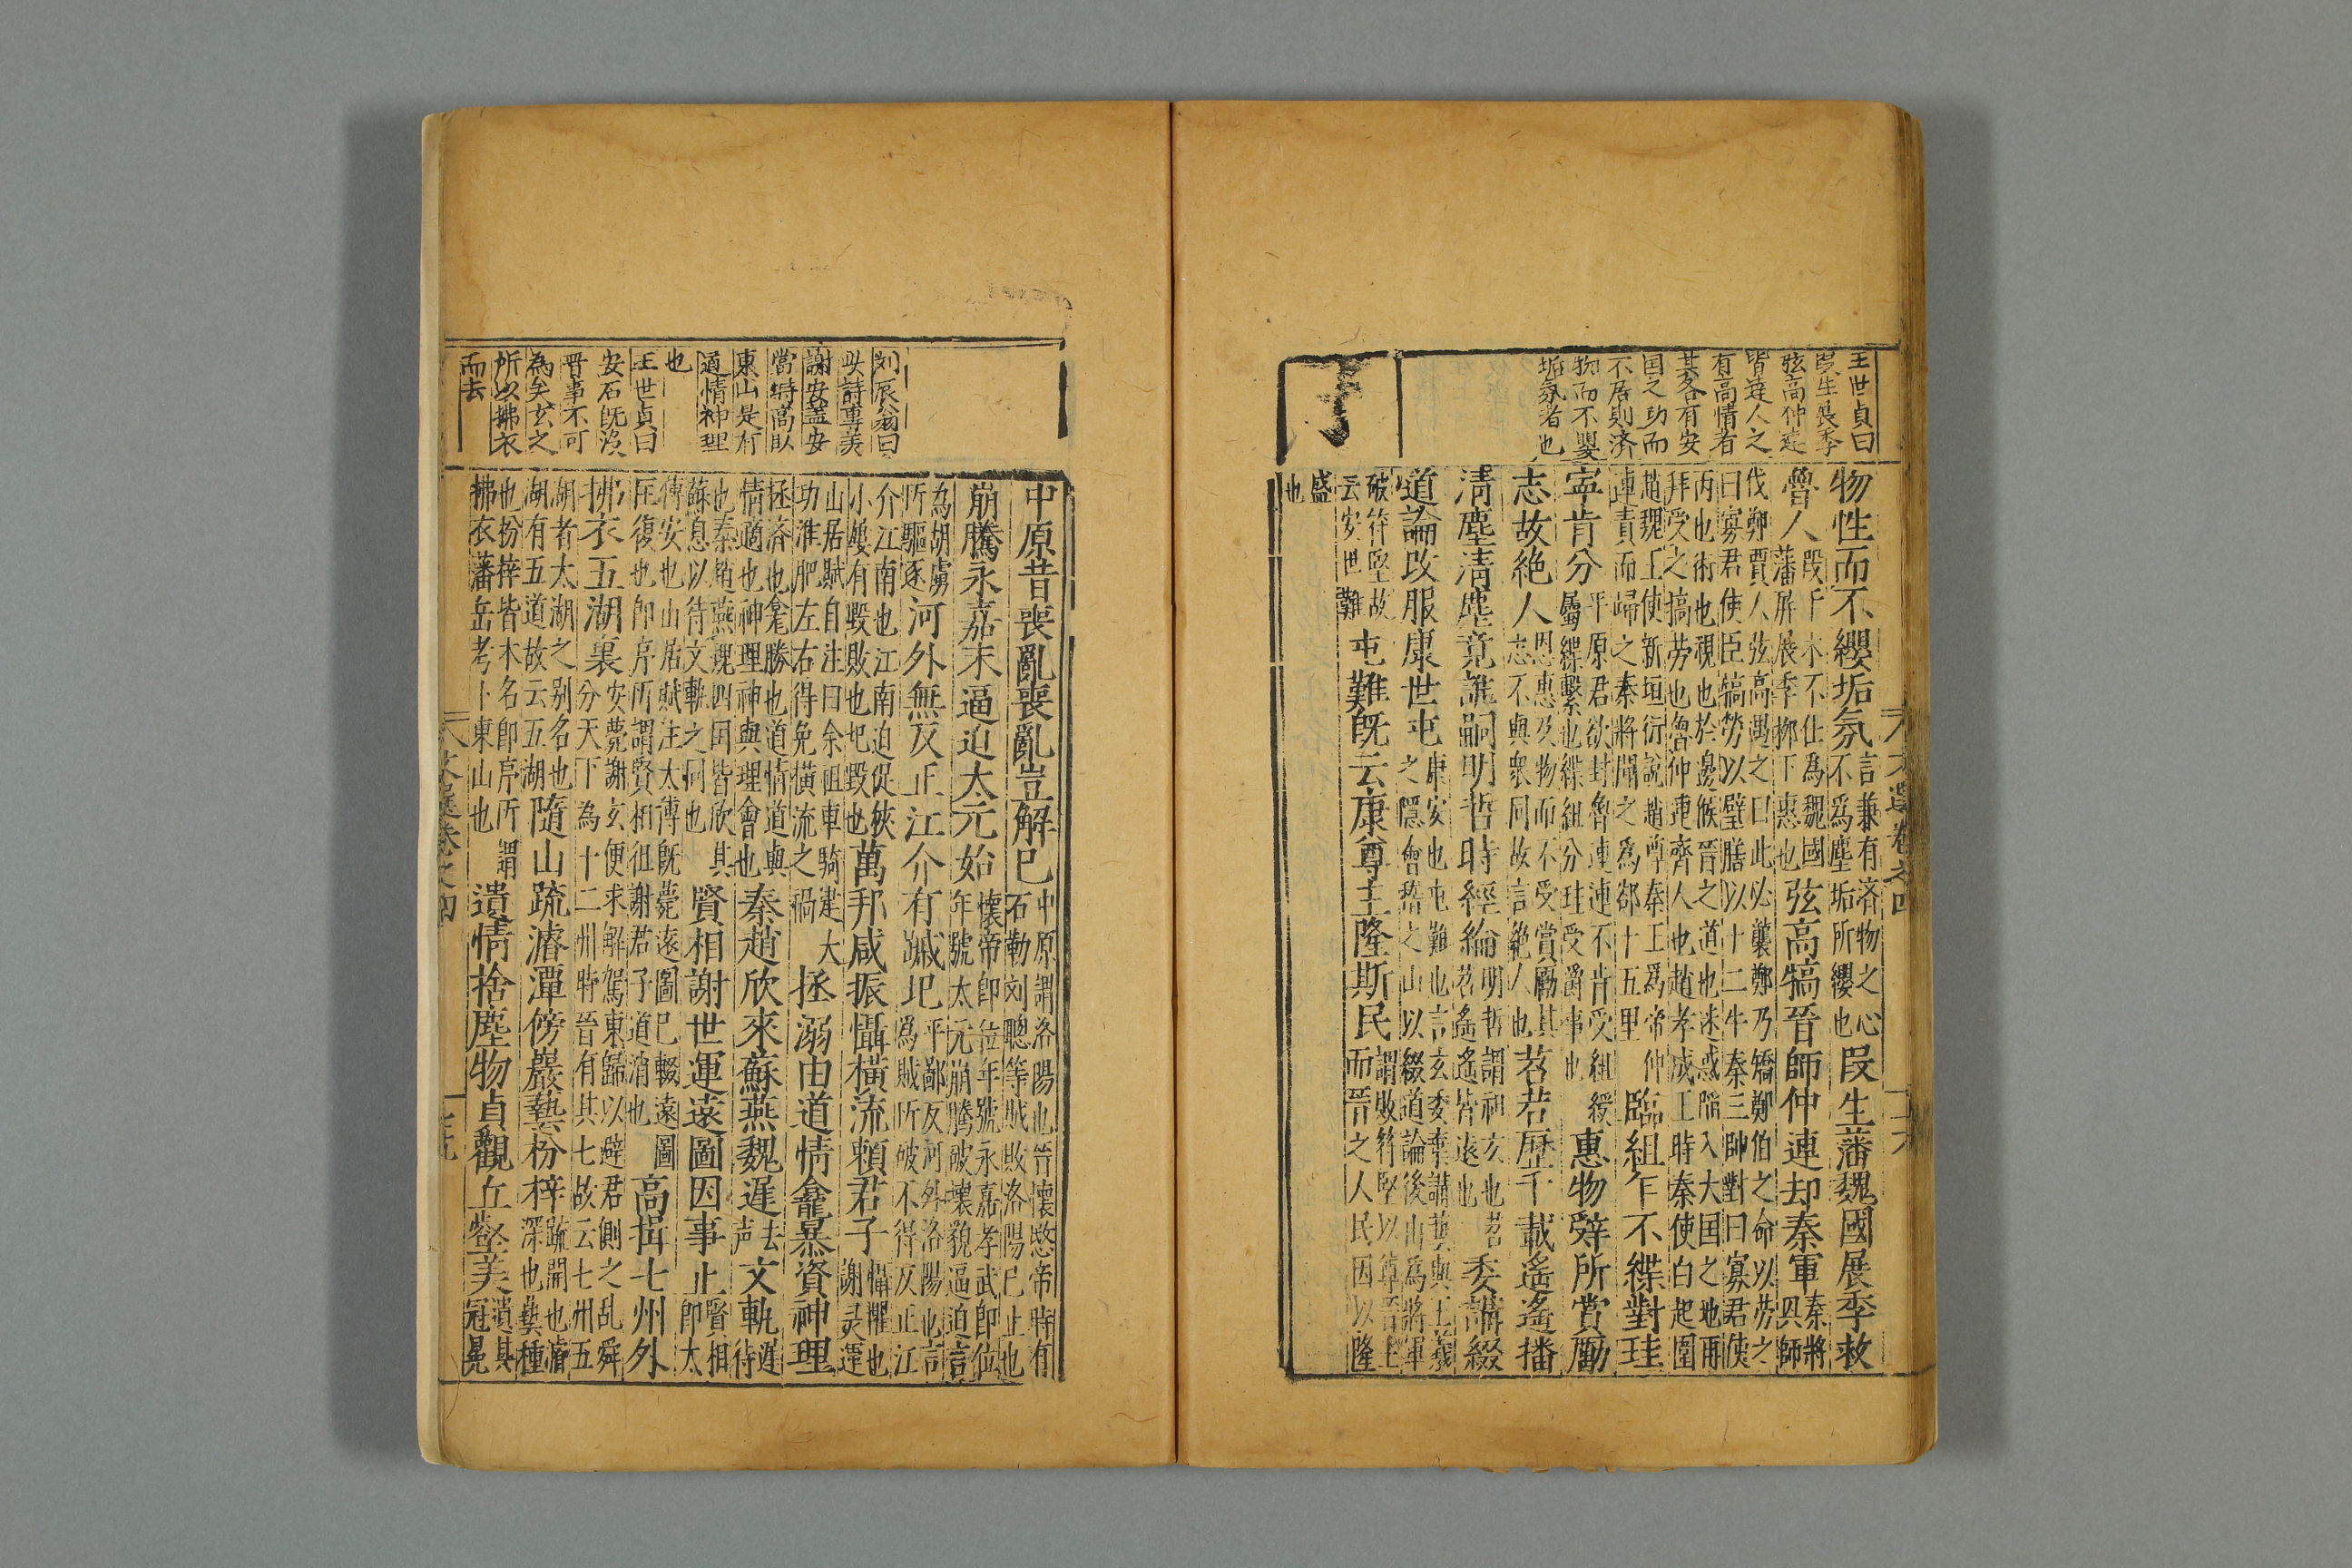 王世貞曰
叚生展季
弦高仲連
皆達人之
有高情者
其各有安
国之功而
不居則済
物而不嬰
垢氛者也
物性而不纓垢氛
言兼有済物之心
不爲塵垢所纓也
叚生藩魏國展季救
魯人
叚干木不仕爲魏國
藩屏展季柳下惠也
弦高犒晉師仲連却秦軍
秦將
興師
伐鄭賈人弦高遇之曰此必襲鄭乃矯鄭伯之命以劳之
曰寡君使臣犒勞以璧膳以十二牛秦三帥對曰寡君使
丙也術也視也於邊候晉之道也迷惑陥入大国之地再
拜受之犒劳也魯仲連齊人也趙孝成王時秦使白起圍
趙魏王使新垣衍説趙尊秦王爲帝仲
連責而歸之秦將聞之為郤十五里
臨組乍不緤對珪
寧肯分
平原君欲封魯連連不肯受組綬
屬緤繫也緤組分珪受爵事也
惠物辤所賞勵
志故絶人
恩惠及物而不受賞勵其
志不與衆同故言絶人也
苕苕歷千載遙遙播
清塵清塵竟誰嗣明哲時經綸
明哲謂祖玄也苕
苕遙遙皆遠也
委講綴
道論改服康世屯
康安也屯難也言玄委棄講藝與王羲
之隱會稽之山以綴道論後山爲將軍
破符堅故
云安世難
屯難旣云康尊主隆斯民
謂敗符堅以尊晉主
而晉之人民因以隆
盛
也
刘辰翁曰
此詩專美
謝安盖安
當時高臥
東山是有
道情神理
也
王世貞曰
安石旣没
晉事不可
為矣玄之
所以拂衣
而去
中原昔喪亂喪亂豈解已
中原謂洛陽也晉懷愍帝時有
石勒刘聰等賊敗洛陽已止也
崩騰永嘉末逼迫太元始
懷帝即位年號永嘉孝武即位
年號太元崩騰破壞貌逼迫言
為胡虜
所驅逐
河外無反正江介有蹙圮
平鄙反河外洛陽也言
爲賊所破不得反正江
介江南也江南迫促狹
小嫂有毀敗也圮毀也
萬邦咸振懾橫流頼君子
懾懼也
謝灵運
山居賦自注曰余祖車騎建大
功淮肥左右得免橫流之禍
拯溺由道情龕暴資神理
拯済也龕勝也道情道與
情適也神理神與理會也
秦趙欣來蘇燕魏遅
去
声
文軌
遅
待
也秦趙燕魏四囯皆欣其
蘇息以待文軌之同也
賢相謝世運遠圖因事止
賢相
即太
傅安也山居賦注太傅旣薨遠圖已輟遠圖
在復也即序所謂賢相徂謝君子道消也
高揖七州外
拂衣五湖裏
安薨謝玄便求解駕東歸以避君側之乱舜
分天下為十二州時晉有其七故云七州五
湖者太湖之别名也
湖有五道故云五湖
隨山疏濬潭傍巖蓺枌梓
疏開也濬
深也蓺種
也枌梓皆木名即序所謂
拂衣藩岳考卜東山也
遺情捨塵物貞觀丘壑美
遺其
冠冕